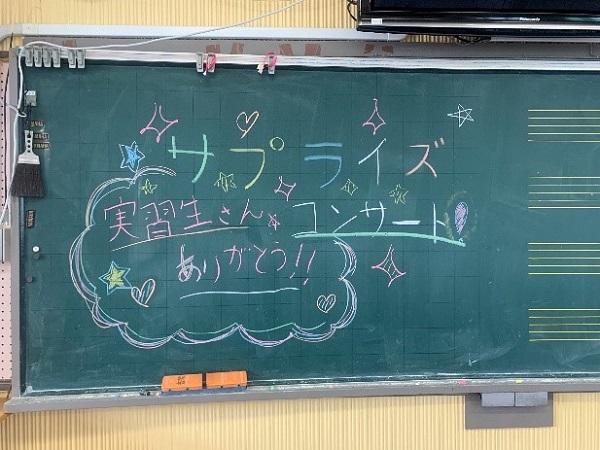 サプライズ
実習生さん コンサート
ありがとう!!